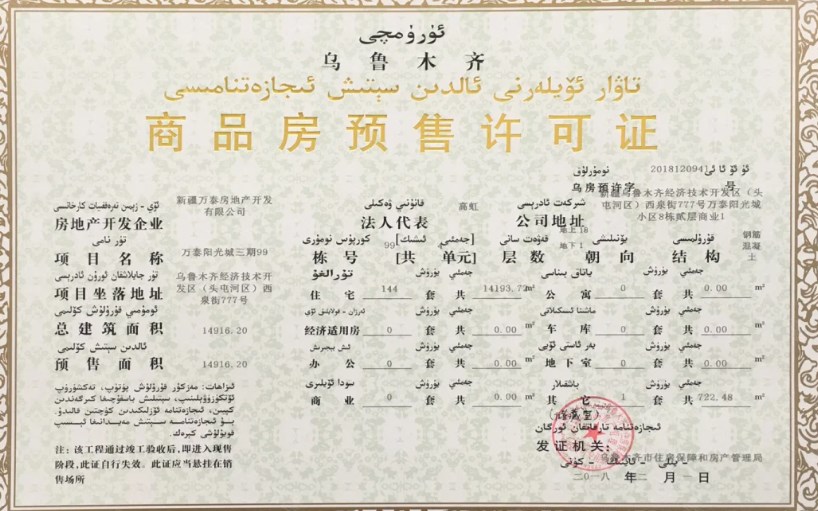 ئۈرۈمچى
乌鲁木齐
تاۋار ئۆيلەرنى ئالدىن سېتىش ئىجازەتنامىسى
商品房预售许可证
نومۇرلۇق 2018120941
乌房预许字 号
新疆万泰房地产开发有限公司
房地产开发企业
قانۇنىي ۋەكىلى
高虹
法人代表
شىركەت ئادرېسى
公司地址
新疆乌鲁木齐经济技术开发区(头屯河区)西泉街777号万泰阳光城小区8栋贰层商业1
تۈر نامى
项目名称
万泰阳光城三期99
كورپۇس نومۇرى [جەمئىي ئىشىك]
栋号 99 [共 单元]
قەۋەت سانى
层数
地上18
地下1
يۆنىلىشى
朝向
قۇرۇلمىسى
结构
钢筋混凝土
تۈر جايلاشقان ئورۇن ئادرېسى
项目坐落地址
乌鲁木齐经济技术开发区(头屯河区)西泉街777号
تۇرالغۇ جەمئىي يۈرۈش
住宅 144 套 共 14193.72 m²
باتاق بىناسى جەمئىي يۈرۈش
公寓 0 套 共 0.00 m²
ئومۇمىي قۇرۇلۇش كۆلىمى
总建筑面积 14916.20
جەمئىي يۈرۈش
经济适用房 0 套 共 0.00 m²
ماشىنا ئىسكىلاتى جەمئىي يۈرۈش
车库 0 套 共 0.00 m²
ئالدىن سېتىش كۆلىمى
预售面积 14916.20
ئىش بېجىرىش جەمئىي يۈرۈش
办公 0 套 共 0.00 m²
يەر ئاستى ئۆيى جەمئىي يۈرۈش
地下室 0 套 共 0.00 m²
سودا ئۆيلىرى جەمئىي يۈرۈش
商业 0 套 共 0.00 m²
باشقىلار جەمئىي يۈرۈش
其它 1 套 共 722.48 m²
注:该工程通过竣工验收后,即进入现售
阶段,此证自行失效。此证应当悬挂在销
售场所
ئىجازەتنامە تارقاتقان ئورگان
发证机关:
乌鲁木齐市住房保障和房产管理局
يىلى ئاينىڭ كۈنى
二〇一八年二月一日